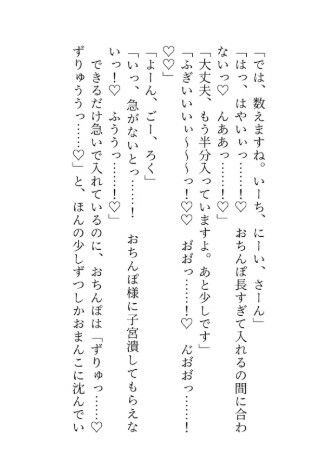 「では、数えますね。いーち、にーい、さーん」
「はっ、はやいぃっ……！♡　おちんぽ長すぎて入れるの間に合わ
ないっ♡　んああっ……！♡」
「大丈夫、もう半分入っていますよ。あと少しです」
「ふぎいいいぃ〜〜〜っ！♡♡　お゙お゙っ……！♡　ん゙お゙お゙っ……！
♡♡」
「よーん、ごー、ろく」
「いっ、急がないとっ……！　おちんぽ様に子宮潰してもらえな
いっ！♡　ふううっ……！♡」
　できるだけ急いで入れているのに、おちんぽは「ずりゅっ……♡
ずりゅううっ……♡」と、ほんの少しずつしかおまんこに沈んでい